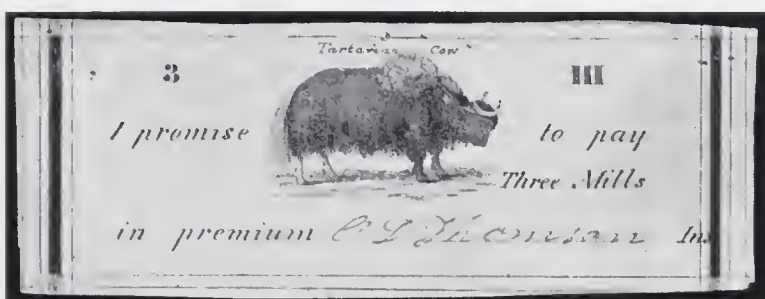 Tartarian Cow
3 III
I promise to pay
Three Mills
in premium Ins